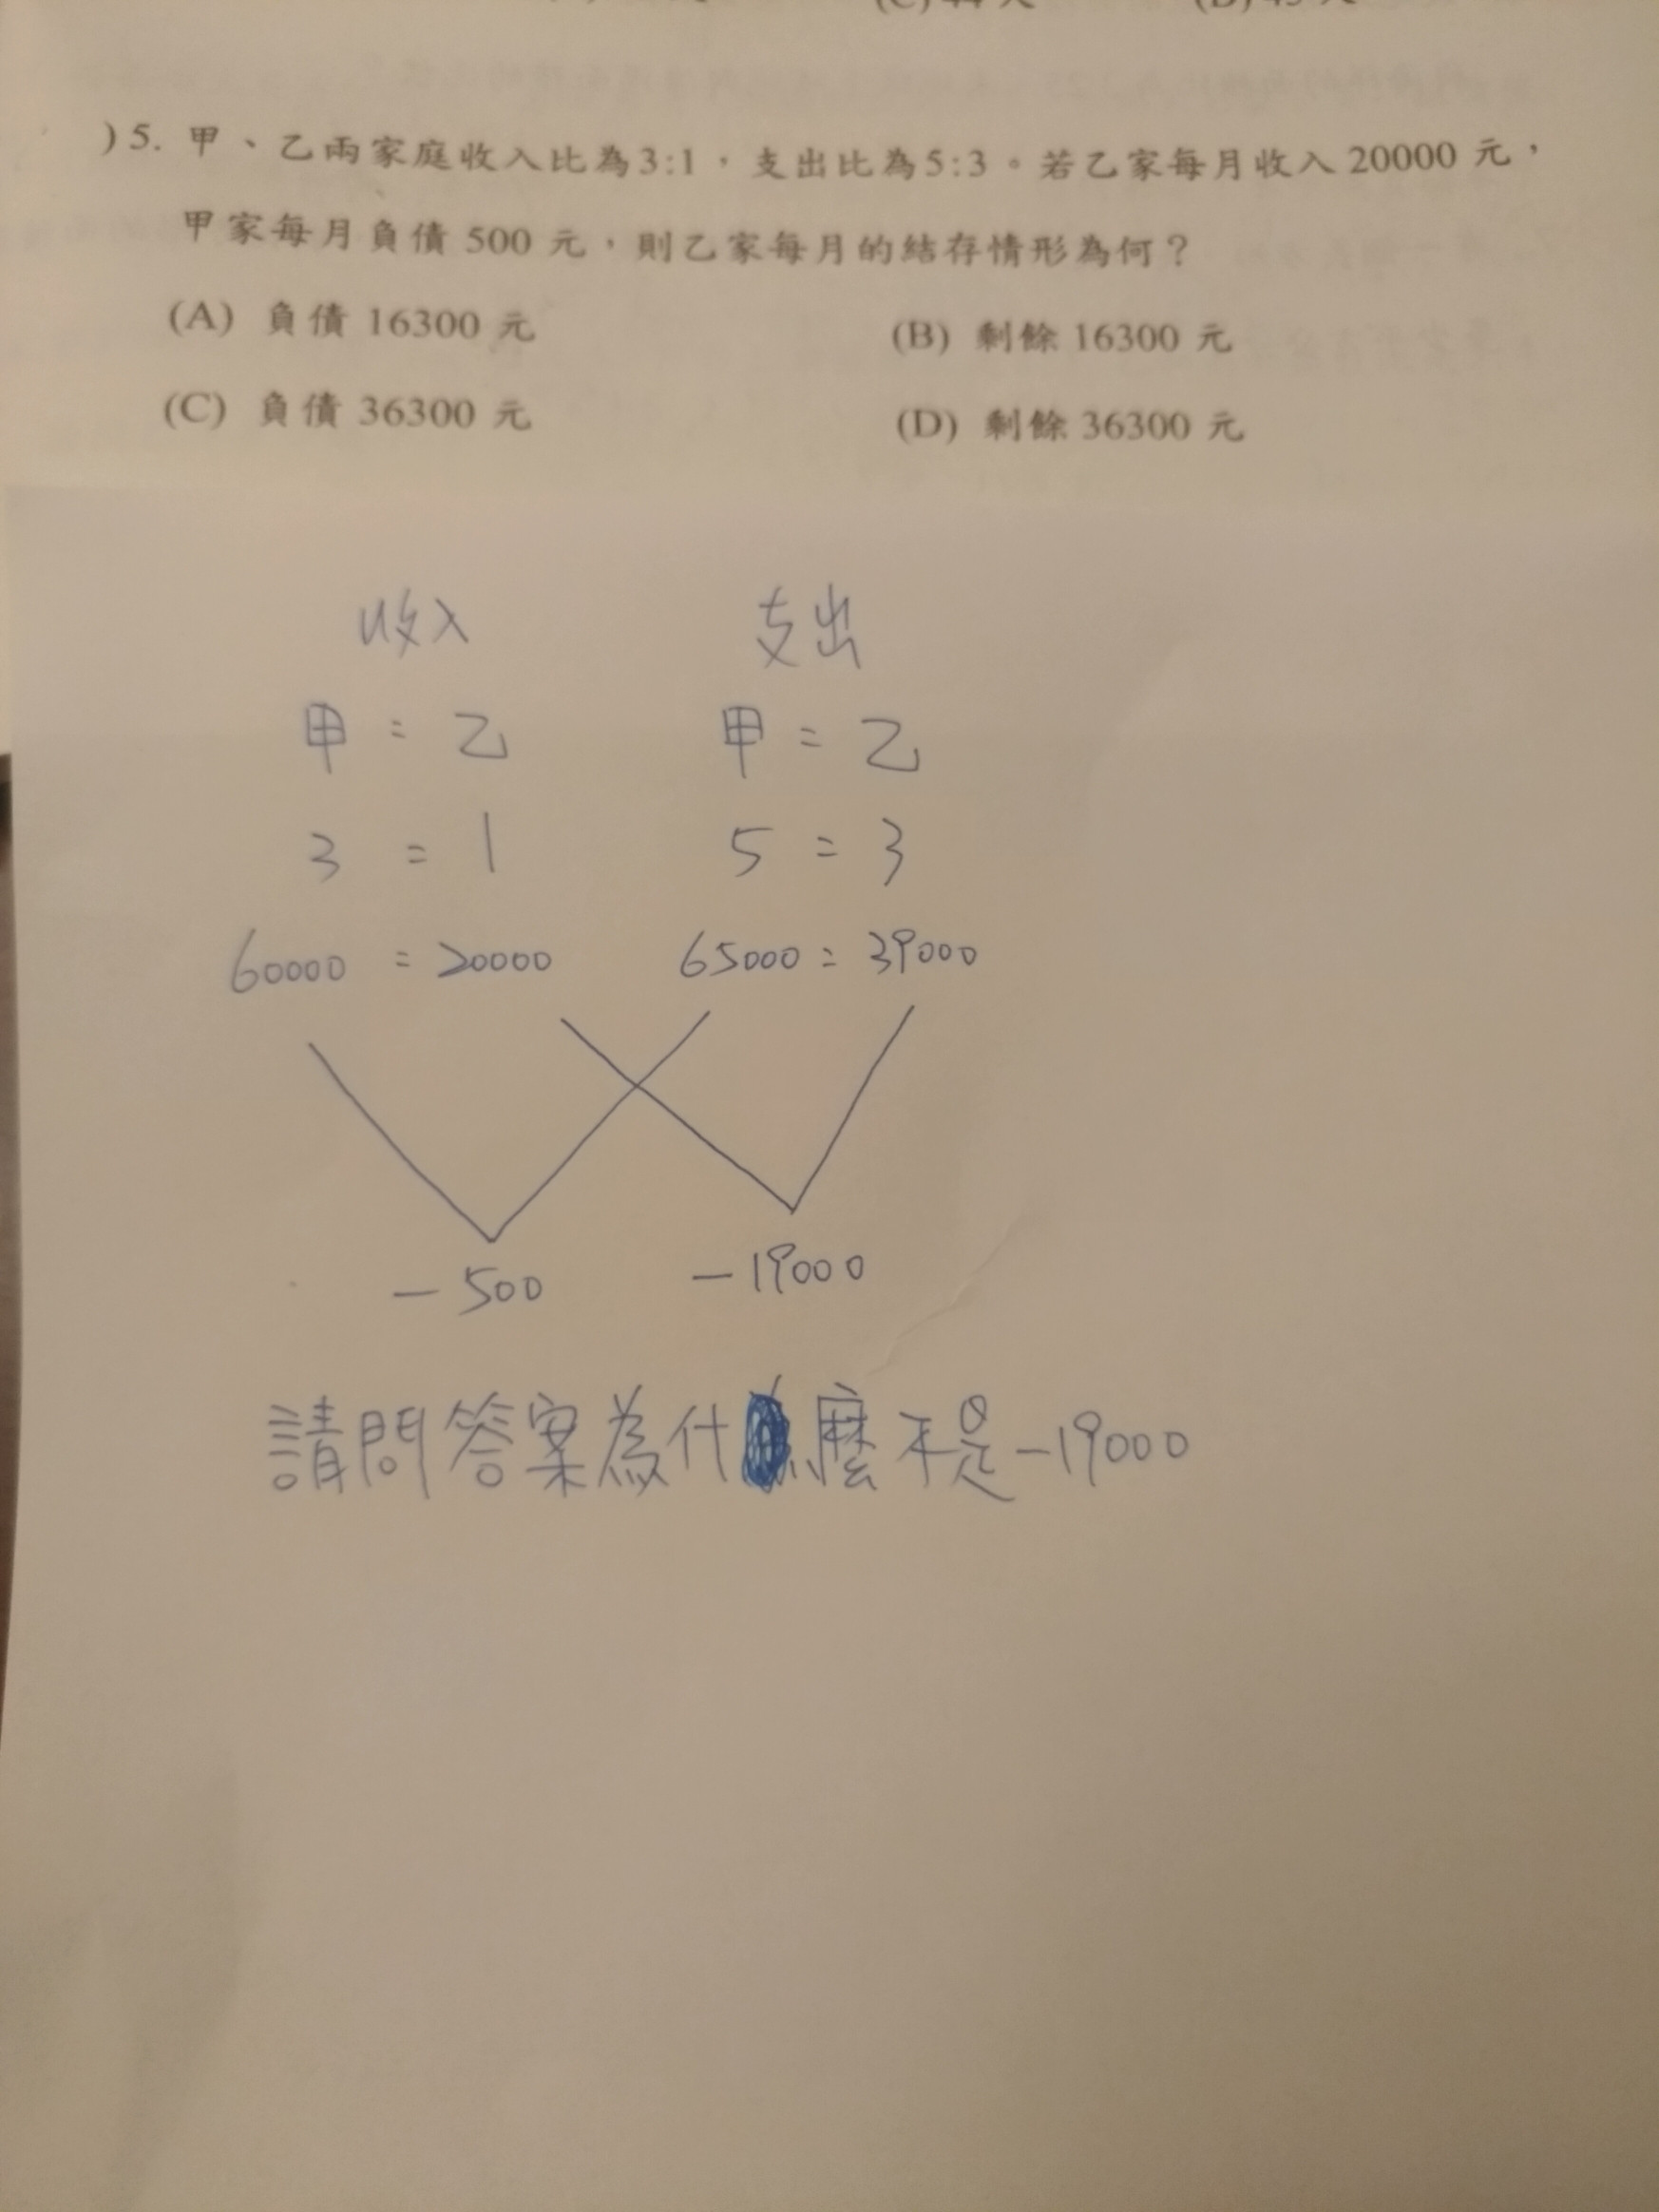 )5. 甲、乙兩家庭收入比為3:1,支出比為5:3。若乙家每月收入 20000 元,
甲家每月負債 500 元,則乙家每月的結存情形為何?
(A) 負債 16300 元 (B) 剩餘 16300 元
(C) 負債 36300 元 (D) 剩餘 36300 元
收入 支出
甲 : 乙 甲 : 乙
3 : 1 5 : 3
60000 : 20000 65000 : 39000
-500 -19000
請問答案為什麼不是-19000